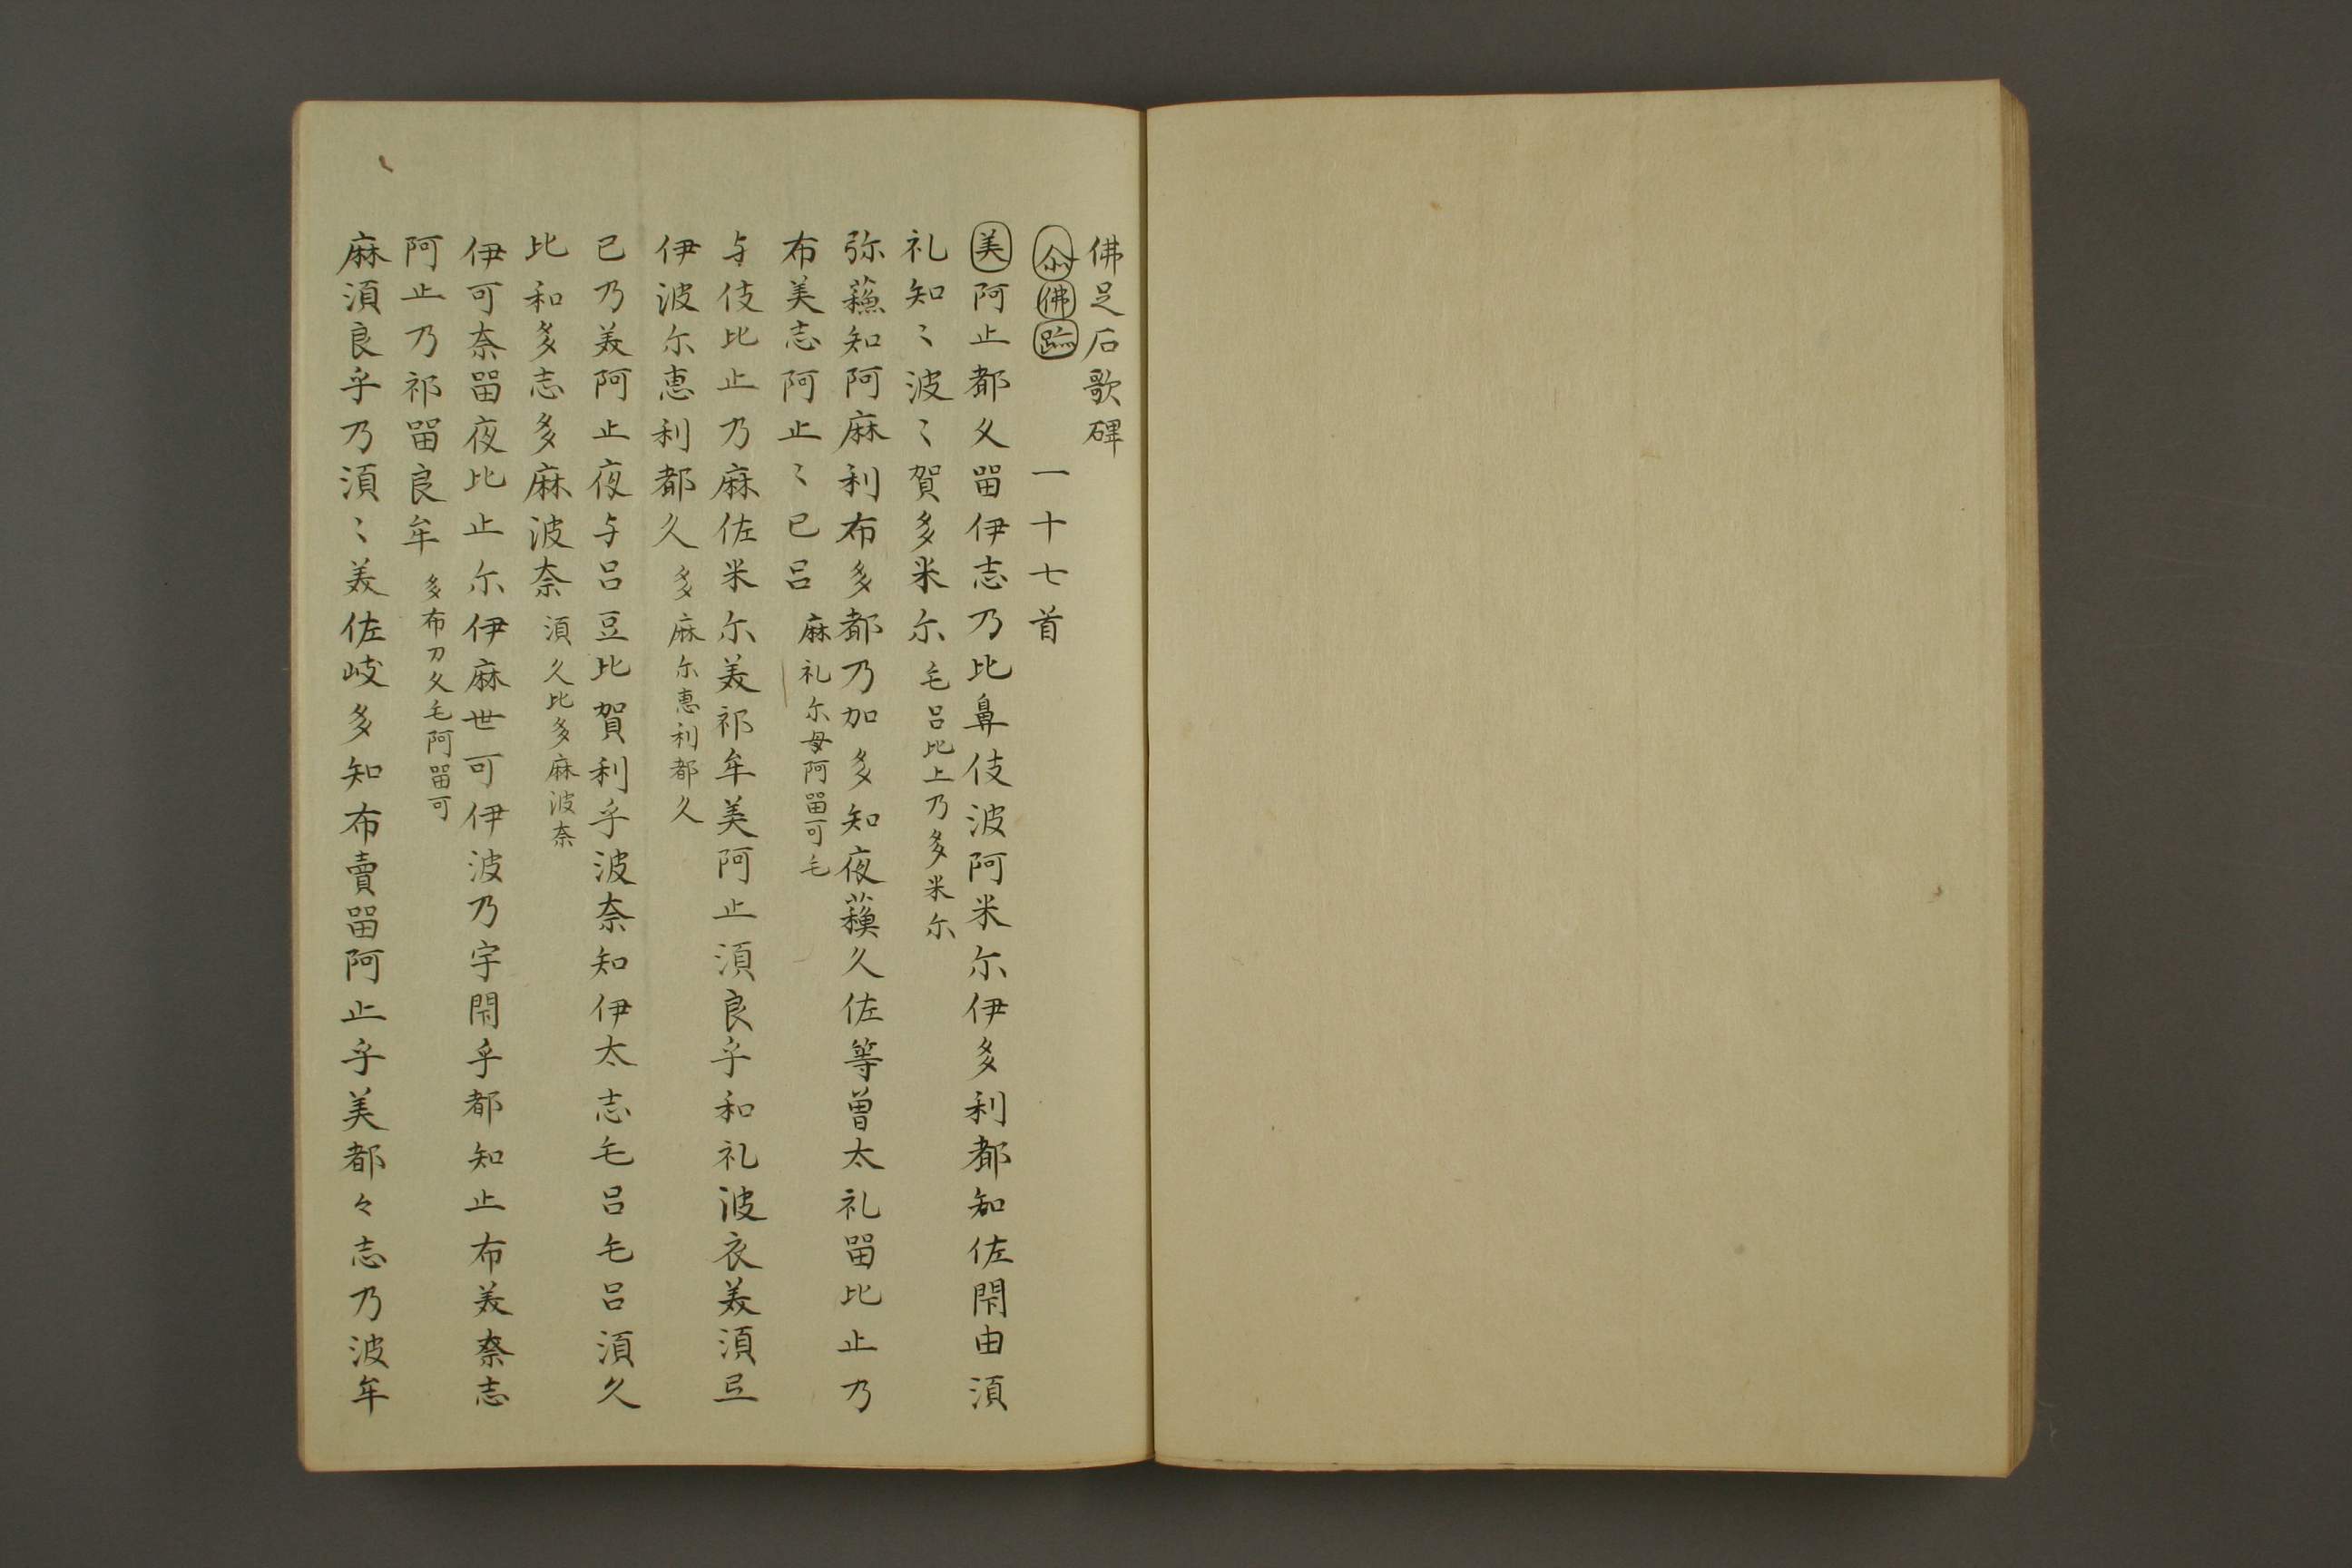 佛足石歌碑
佛跡 一十七首
美阿止都久留伊志乃比鼻伎波阿米尓伊多利都知佐閇由湏
礼知〻波〻賀多米尓 毛呂比止乃多米尓
弥蘓知阿麻利布多都乃加多知夜蘓久佐等曽太礼留比止乃
布美志阿止〻己呂 麻礼尓母阿留可毛
与伎比止乃麻佐米尓美祁牟美阿止湏良乎和礼波衣美湏弖
伊波尓恵利都久 多麻尓恵利都久
己乃美阿止夜与呂豆比賀利乎波奈知伊太志毛呂毛呂湏久
比和多志多麻波奈 湏久比多麻波奈
伊可奈留夜比止尓伊麻世可伊波乃宇閇乎都知止布美奈志
阿止乃祁留良牟 多布刀久毛阿留可
麻湏良乎乃湏〻美佐岐多知布賣留阿止乎美都々志乃波牟